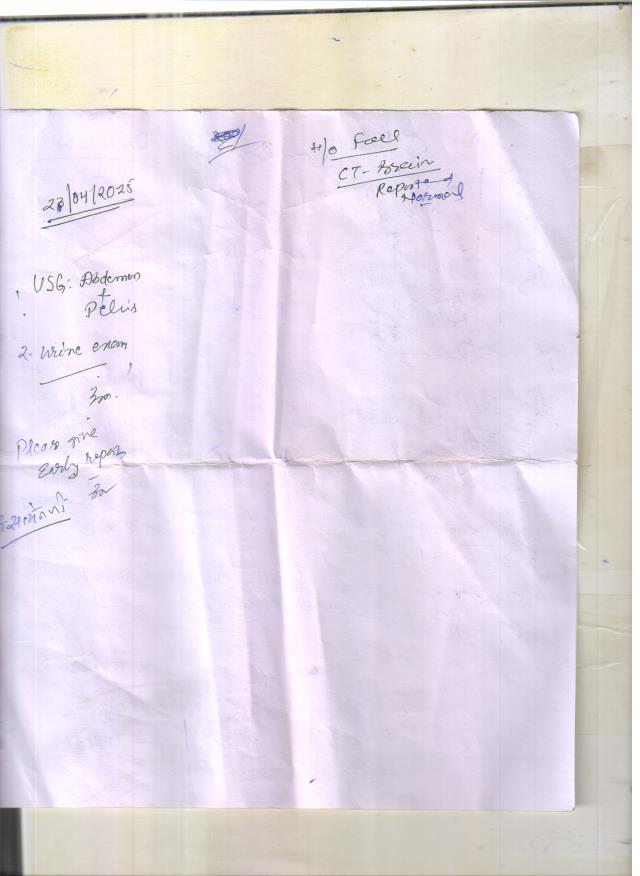 H/o Fall
CT- Brain
Reported
Normal
23/04/2025
1. USG: Abdomen
+
Pelvis
2. Urine exam
Please give
Early report